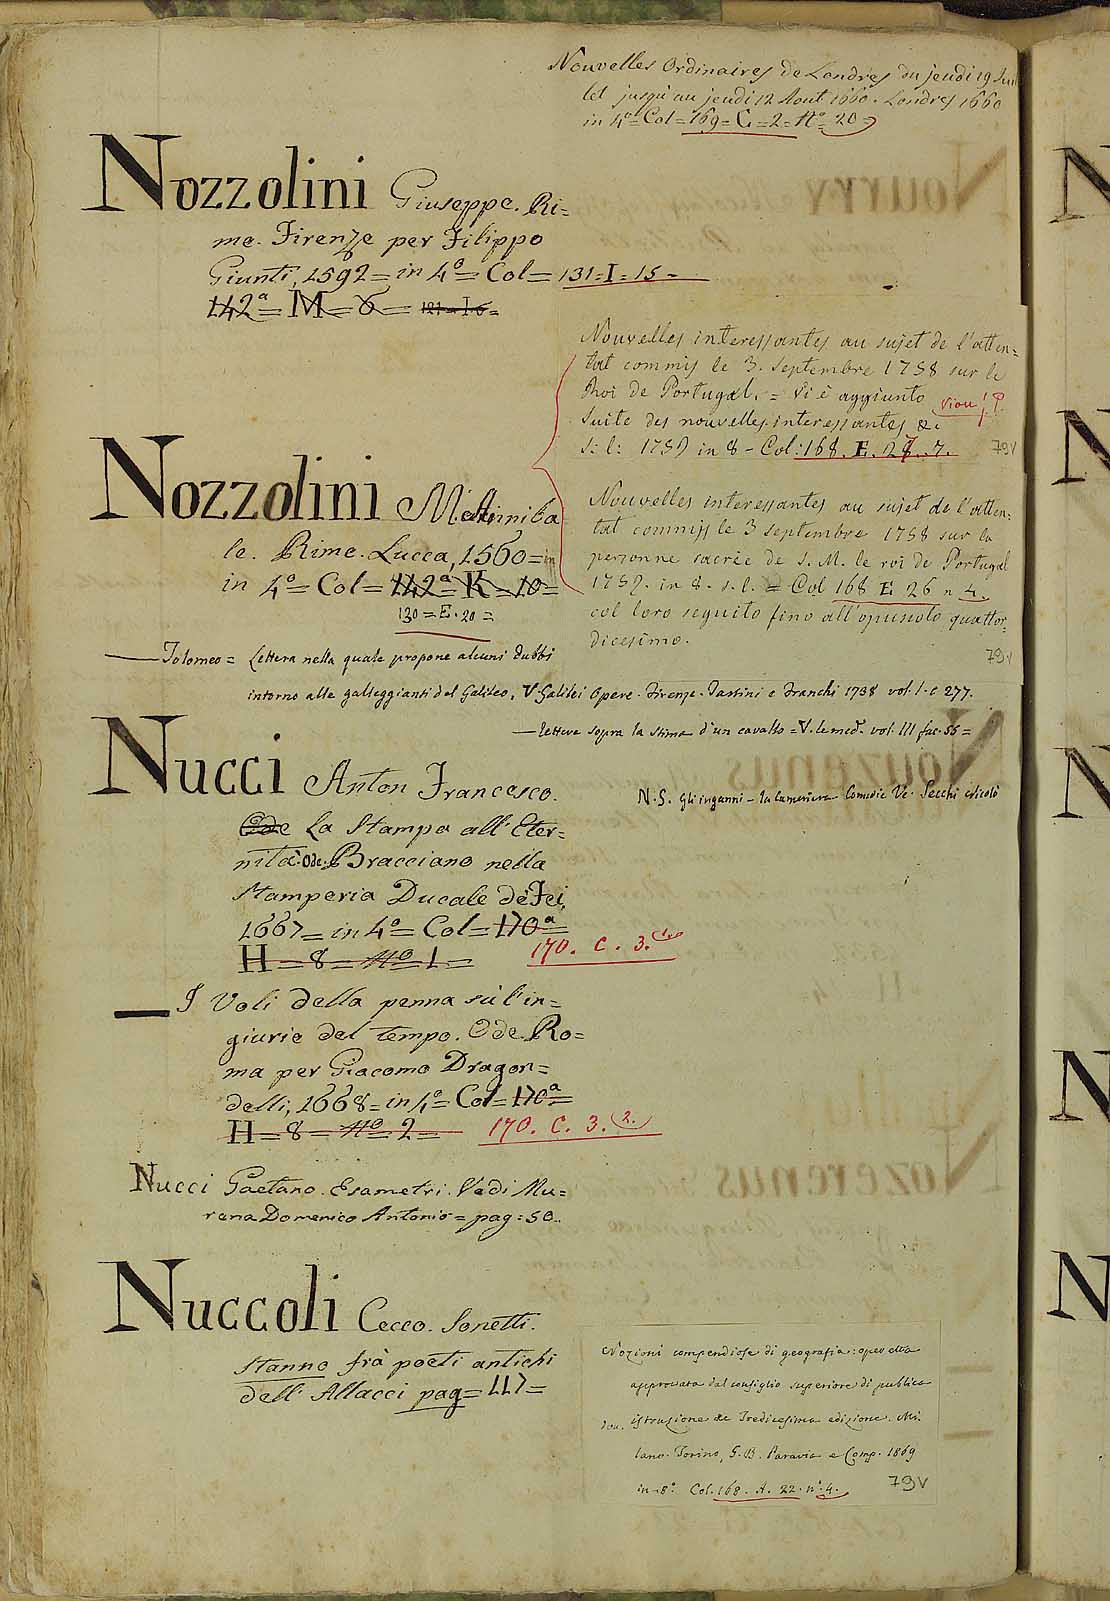 Nouvelles Ordinaires de Londres du jeudi 19 Juil
let jusqu'au jeudi 12 Aout 1660. Londres 1660
in 4º Col = 169 = C = 2 = Nº 20
Nozzolini Giuseppe. Ri=
me. Firenze per Filippo
Giunti, 1592 = in 4º = Col = 131 = I = 15 =
142ª = M = 6 =
Nouvelles interessantes au sujet de l'atten=
tat commis le 3. Septembre 1758 sur le
Roi de Portugal. = Vi è aggiunto
Suite des nouvelles interessantes &c
s: l: 1759 in 8 - Col: 168. E. 27. 7.
79v
Nozzolini M. Anniba
le. Rime. Lucca, 1560 = in
in 4º = Col = 142ª = K = 10 =
130 = E. 20 =
Nouvelles interessantes au sujet de l'atten=
tat commis le 3 septembre 1758 sur la
personne sacrée de S. M. le roi de Portugal
1759. in 8. s. l. = Col 168 E. 26 n 4.
col loro seguito fino all'opuscolo quattor=
dicesimo.
79v
— Tolomeo = Lettera nella quale propone alcuni dubbi
intorno alle galleggianti del Galileo. V. Galilei Opere. Firenze. Tartini e Franchi 1738 vol. I. c 277.
— lettera sopra la stima d'un cavallo = V. le med.e vol. III fac. 55 =
Nucci Anton Francesco.
Ode La Stampa all'Eter=
nità. Ode. Bracciano nella
Stamperia Ducale de Fei,
1667 = in 4º = Col = 170ª
H = 8 = Nº 1 =
170. C. 3. (1.
N. S. Gli inganni - La cameriera Comedie Ve. Secchi Nicolò
— I Voli della penna sù l'in=
giurie del tempo. Ode. Ro=
ma per Giacomo Dragon=
delli, 1668 = in 4º = Col = 170ª
H = 8 = Nº 2 =
170. C. 3. (2.)
Nucci Gaetano. Esametri. Vedi Mu=
rena Domenico Antonio = pag: 50.
Nuccoli Cecco. Sonetti.
stanno frà poeti antichi
dell'Allacci pag = 117 =
Nozioni compendiose di geografia: operetta
approvata dal consiglio superiore di publica
istruzione &c Tredicesima edizione. Mi.
lano. Torino, G. B. Paravia e Comp. 1869
in 8º Col. 168. A. 22. nº 4.
79v